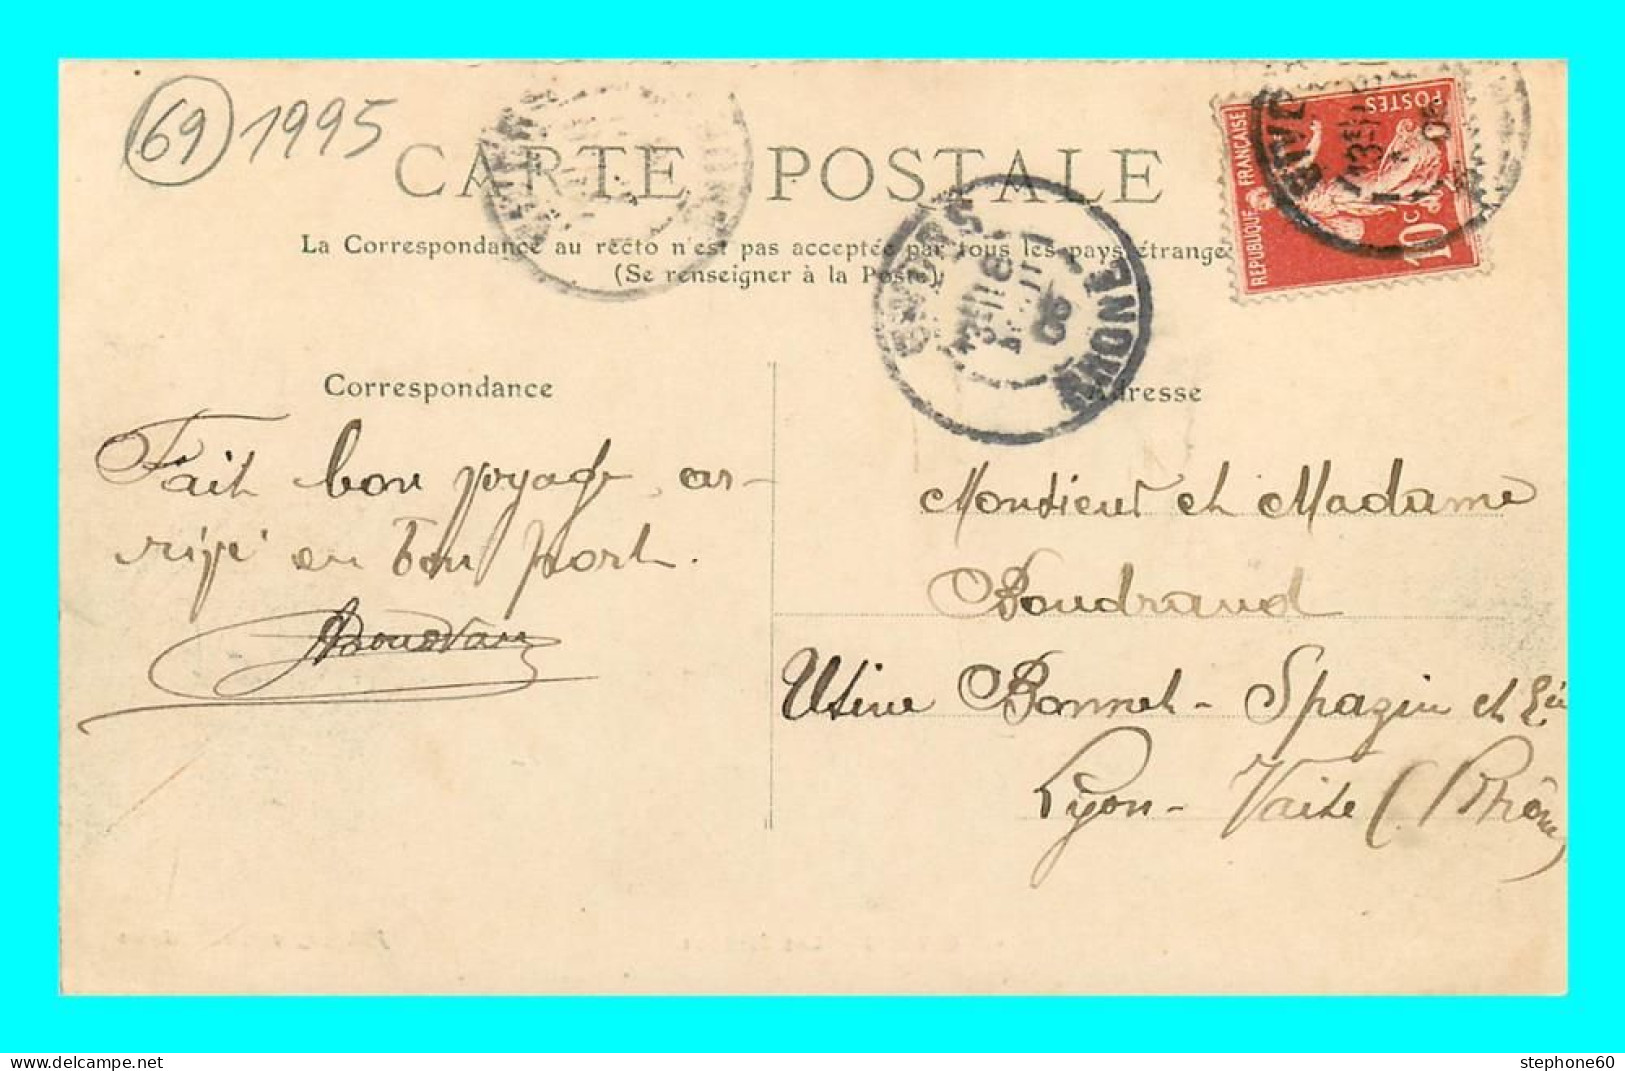 69 1995
CARTE POSTALE
La Correspondance au recto n'est pas acceptée par tous les pays étrange
(Se renseigner à la Poste)
REPUBLIQUE FRANÇAISE
POSTES
10c
RHONE
Correspondance
Adresse
Fait bon voyage, ar-
rivé en bon port.
Monsieur et Madame
Boudrand
Usine Bonnet - Spazin et Cie
Lyon - Vaise (Rhône)
stephone60